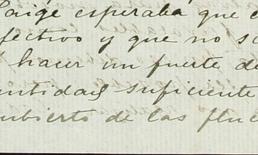 Paige esperaba que e
fectivo y que no s
hacer un fuerte de
ntidad suficiente
ubierto de las fluc